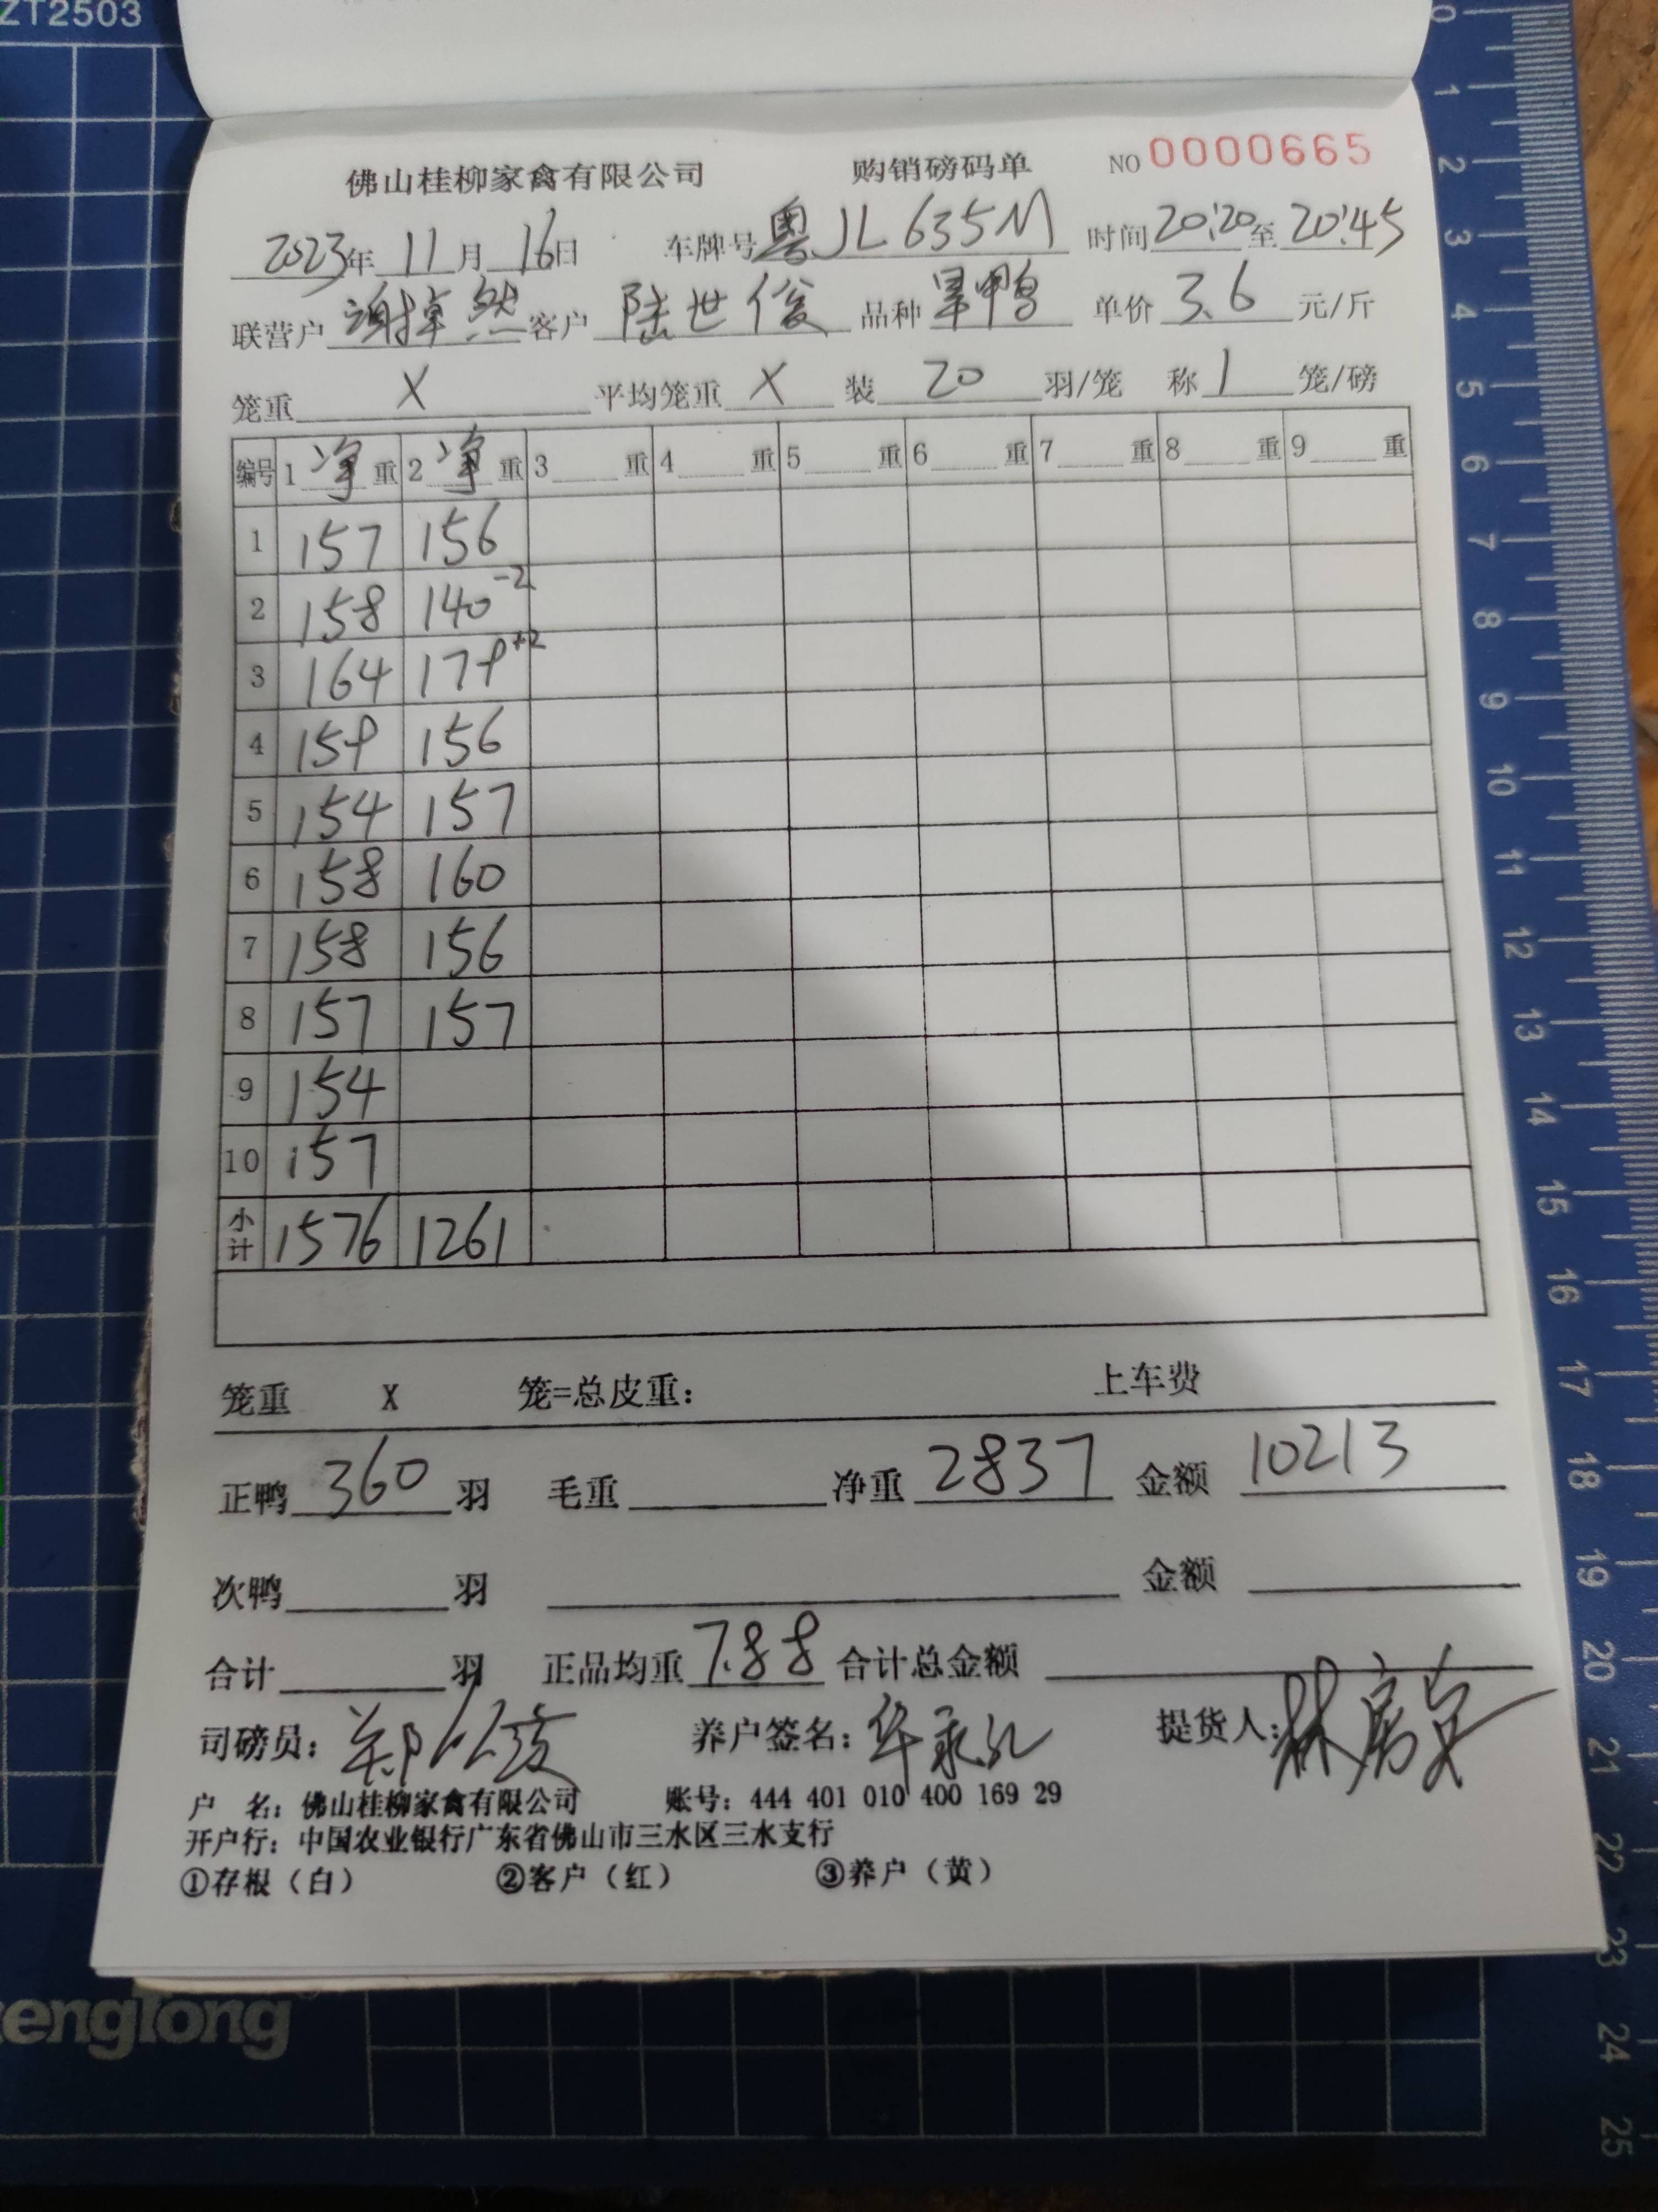 ZT2503
佛山桂柳家禽有限公司 购销磅码单 NO 0000665
2023年 11月 16日 车牌号 粤JL635M 时间 20:20 至 20:45
联营户 谢焯然 客户 陆世俊 品种 旱鸭 单价 3.6 元/斤
笼重 X 平均笼重 X 装 20 羽/笼 称 1 笼/磅
编号 1 净 重 2 净 重 3 重 4 重 5 重 6 重 7 重 8 重 9 重
1 157 156
2 158 140 -2
3 164 179 +2
4 159 156
5 154 157
6 158 160
7 158 156
8 157 157
9 154
10 157
小计 1576 1261
笼重 X 笼=总皮重: 上车费
正鸭 360 羽 毛重 净重 2837 金额 10213
次鸭 羽 金额
合计 羽 正品均重 7.88 合计总金额
司磅员: 养户签名: 提货人:
户 名: 佛山桂柳家禽有限公司 账号: 444 401 010 400 169 29
开户行: 中国农业银行广东省佛山市三水区三水支行
①存根(白) ②客户(红) ③养户(黄)
0 1 2 3 4 5 6 7 8 9 10 11 12 13 14 15 16 17 18 19 20 21 22 23 24 25